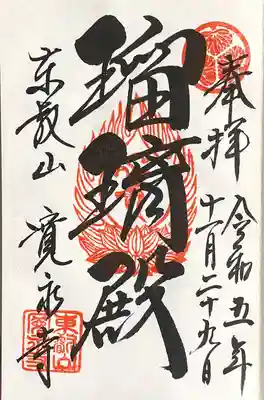 奉拝
令和五年
十一月二十九日
瑠璃殿
東叡山 寛永寺